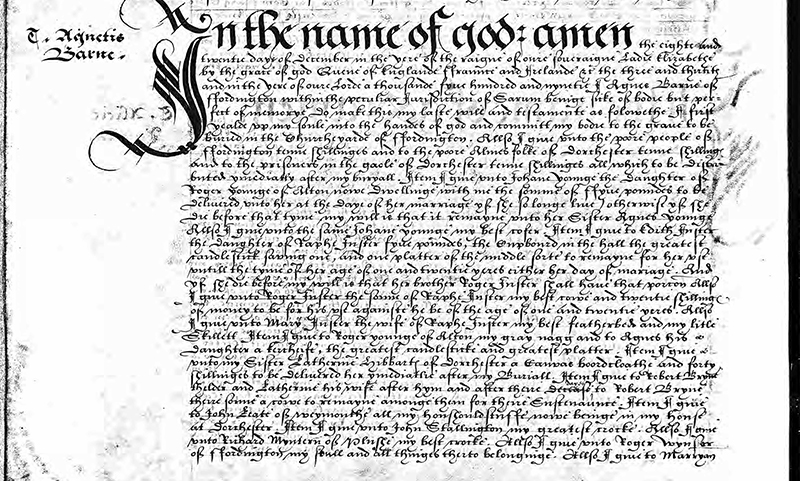 T. Agnetis
Barne.
In the name of god: amen the eighte and
twentie daye of December in the yere of the raigne of oure soveraigne Ladie Elizabethe
by the grace of god Quene of Englande ffraunce and Irelande &c the three and thirtith
and in the yere of oure Lorde a thousande fyve hundred and nynetie I Agnes Barne of
ffordington within the peculiar Jurisdiction of Sarum beinge sicke of bodie but per-
fect of memorye Do make this my laste will and testament as folowethe / I first
yealde upp my soule into the handes of god and committ my bodie to the grave to be
buried in the Churcheyarde of ffordington / Allso I give unto the poore people of
ffordington tenne shillinges and to the poore Almes folke of Dorchester tenne shillinges
and to the prisoners in the gaole of Dorchester tenne shillinges all which to be distri-
buted ymediatly after my buryall. Item I give unto Johane younge the Daughter of
Roger younge of Alton nowe dwellinge with me the somme of ffyve poundes to be
delivered unto her at the daye of her marriage yf she so longe live / otherwise yf she
die before that tyme my will is that it remayne unto her Sister Agnes younge
Allso I give unto the same Johane younge my best cofer Item I give to Edith Juster
the daughter of Raphe Juster fyve poundes, the Cupbord in the hall the greatest
candlestick saving one, and one platter of the middle sorte to remayne for her use
untill the tyme of her age of one and twentie yeres either her day of mariage. And
yf she die before my will is that her brother Roger Juster shall have that porcon Allso
I give unto Roger Juster the sonne of Raphe Juster my best cowe and twentie shillinges
of money to be for his use againste he be of the age of one and twentie yeres. Allso
I give unto Mary Juster the wife of Raphe Juster my best featherbed and my litle
Skillett. Item I give to Roger younge of Alton my gray nagg and to Agnes his
daughter a kercheife, the greatest candlesticke and greatest platter. Item I give
unto my Sister Catherine Hibbart of Dorchester a Canvas boordcloathe and forty
shillinges to be delivered her ymediatlie after my Buriall. Item I give to Robert Bryne
thelder and Catherine his wife after hym and after there decease to Robert Bryne
there sonne a cowe to remayne amonge them for theire Sustenaunce. Item I give
to John Bate of weymouthe all my houshouldstuffe nowe beinge in my house
at Dorchester Item I give unto John Stallington my greatest crocke. Allso I give
unto Richard Myntern of my best crocke. Allso I give unto Roger
of ffordington my and all thinges therto belonginge. Allso I give to Marryan